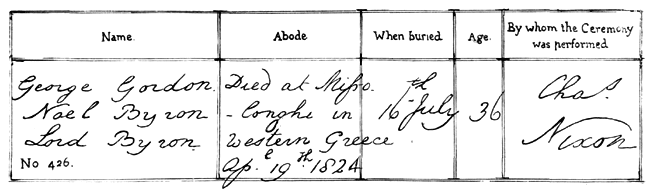 Name.
Abode
When buried
Age.
By whom the Ceremony
was performed
George Gordon
Noel Byron
Lord Byron
No 426.
Died at Misso-
-longhi in
Western Greece
Ap.l 19th 1824
16th July
36
Chas.
Nixon